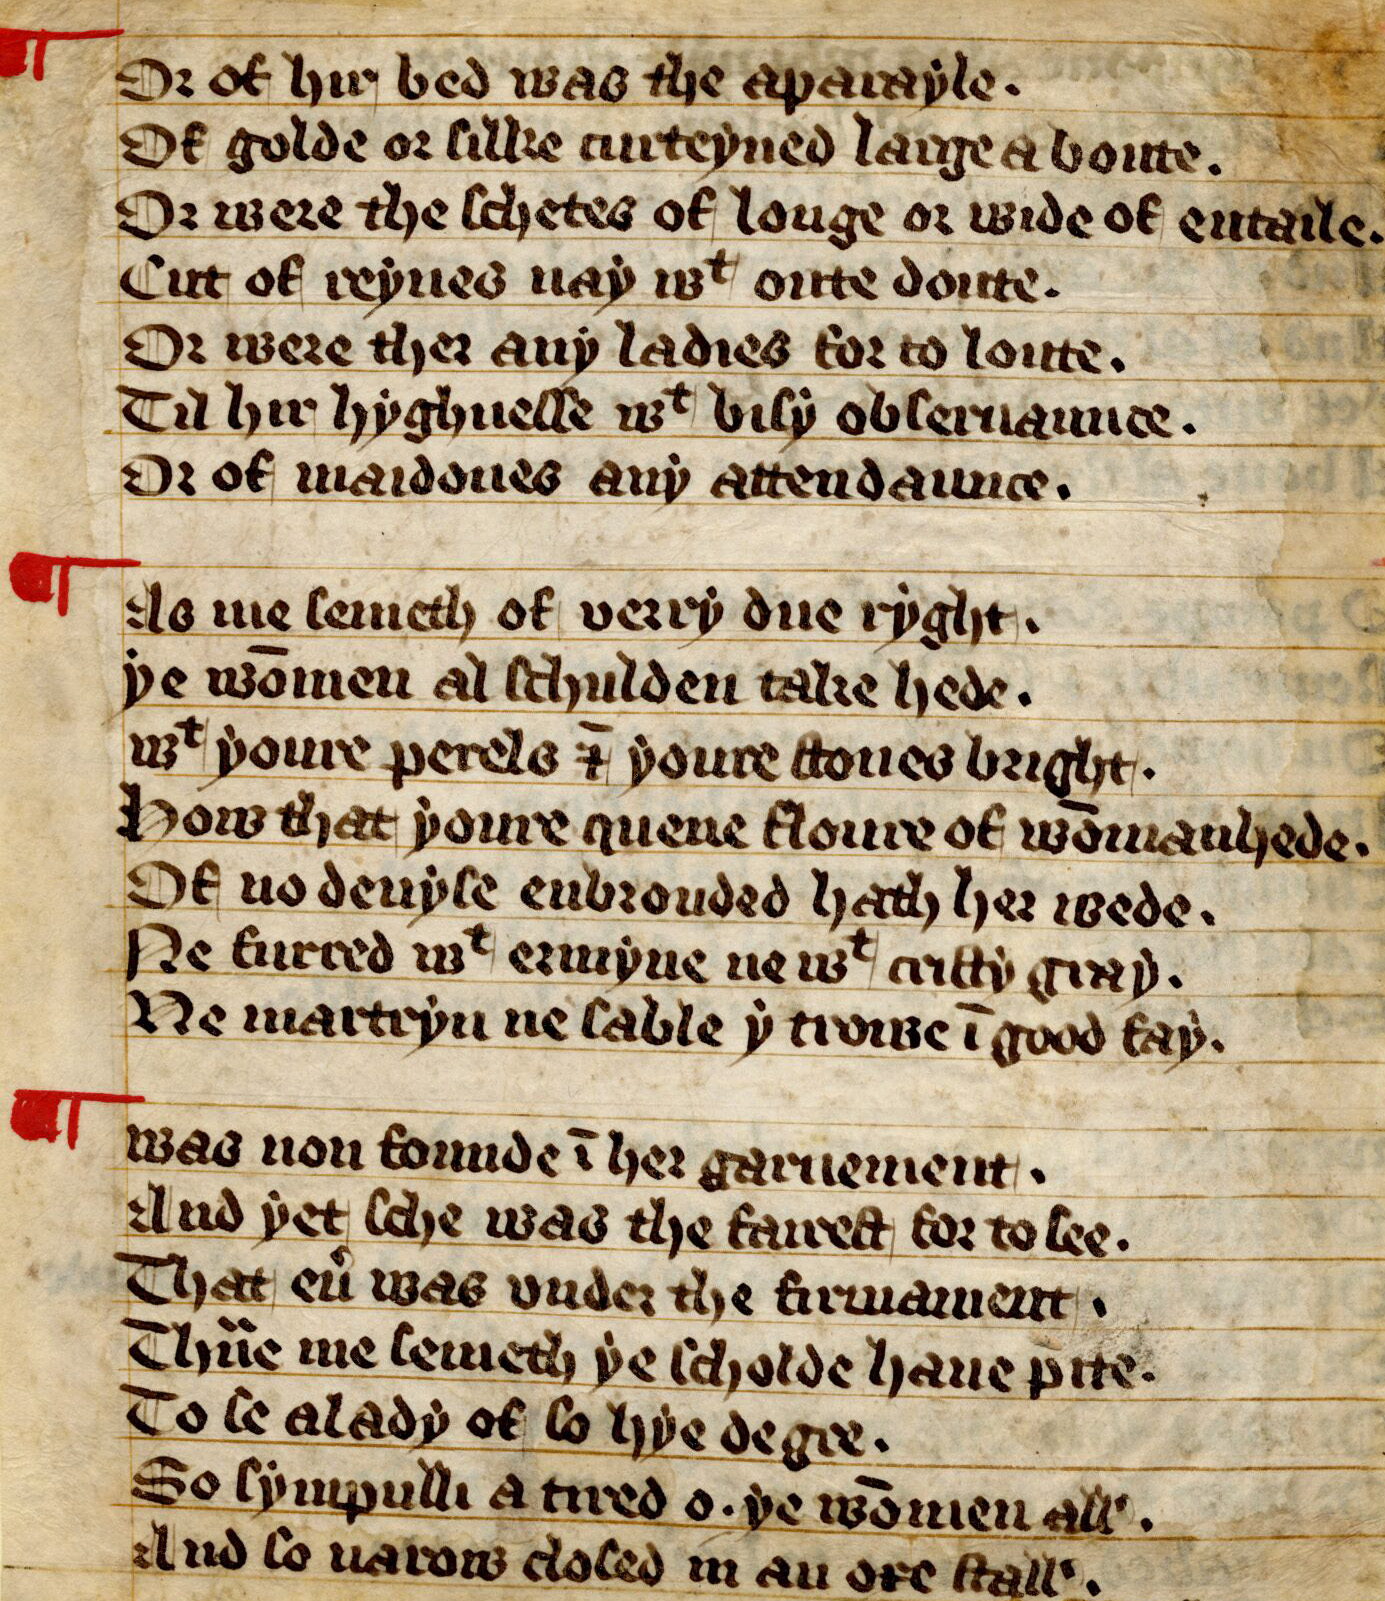 Or of hir bed was the aparayle.
Of golde or silke curteyned large a boute.
Or were the schetes of longe or wide of entaile.
Cut of reynes nay wᵗ oute doute.
Or were ther any ladies for to loute.
Til hir hyghnesse wᵗ bisy obseruaunce.
Or of maidones any attendaunce.
¶ As me semeth of verry due ryght.
ye wōmen al schulden take hede.
wᵗ youre perels ⁊̄ youre stones bright.
How that youre quene floure of wōmanhede.
Of no deuyse enbrouded hath her wede.
Ne furred wᵗ ermyne ne wᵗ cristy gray.
Ne martryn ne sable y trowe ī good fay.
¶ was non founde ī her garnement.
And yet sche was the fairest for to see.
That eu͛ was vnder the firmament.
Thūe me semeth ye scholde haue pite.
To se a lady of so hye degre.
So sympulli a tired o. ye wōmen all.
And so narow closed in an oxe stall.